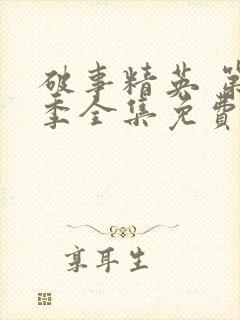 破事精英 第
季全集免费
享耳生